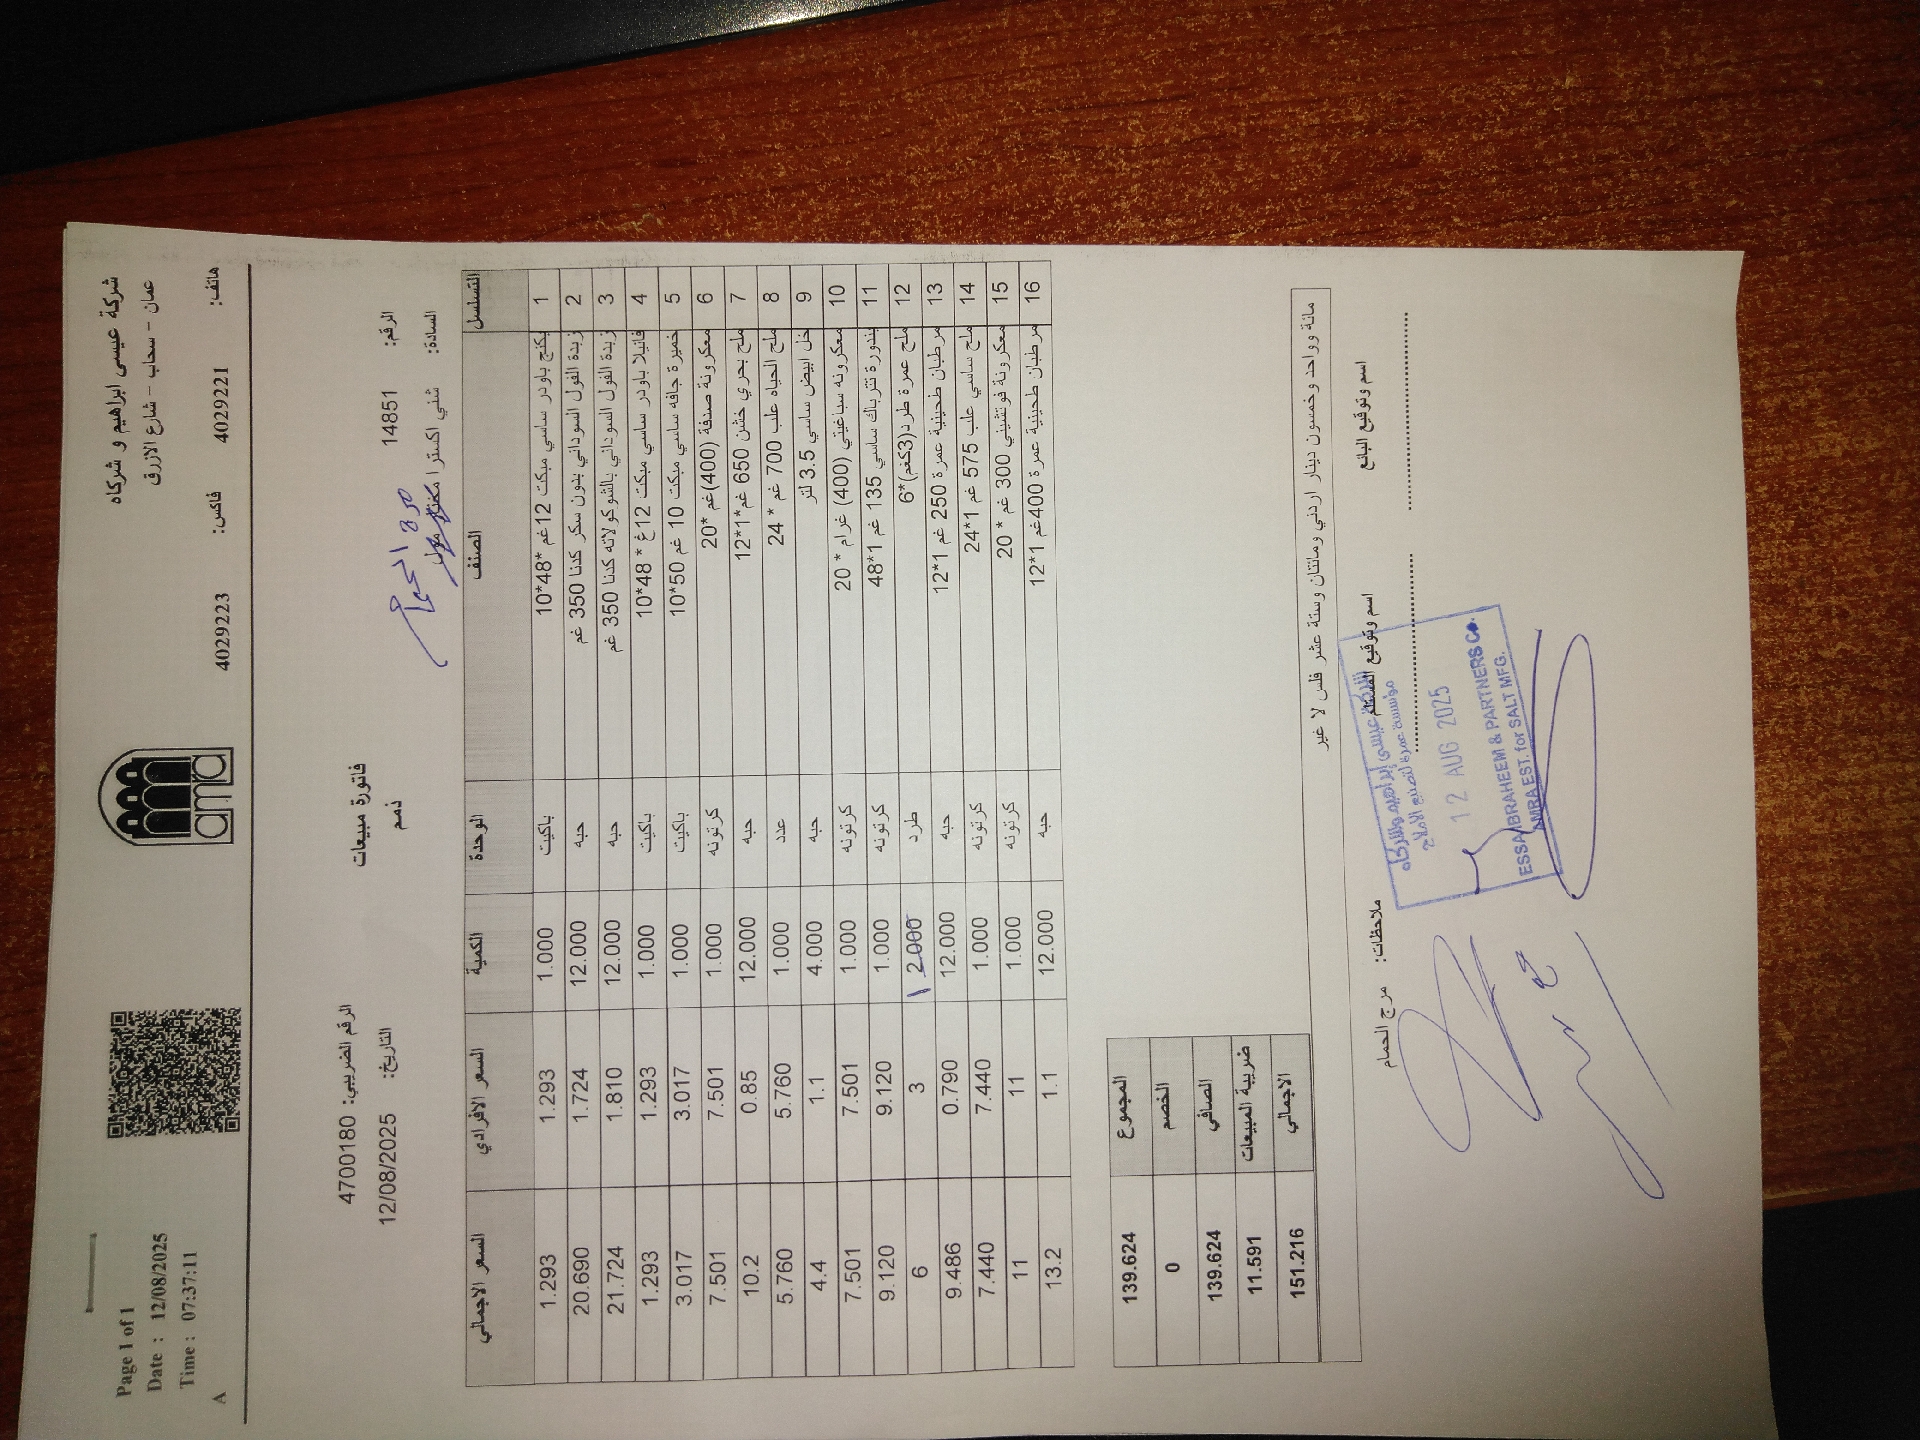 Page 1 of 1
Date : 12/08/2025
Time : 07:37:11
A
عمرة
amra
شركة عيسى ابراهيم و شركاه
عمان - سحاب - شارع الازرق
هاتف: 4029221 فاكس: 4029223
الرقم الضريبي: 4700180
فاتورة مبيعات
ذمم
الرقم: 14851
التاريخ: 12/08/2025
مرج الحمام
السادة: شني اكسترا
التسلسل الصنف الوحدة الكمية السعر الافرادي السعر الاجمالي
1 بيكنج باودر ساسي مبكت 12غم *48*10 باكيت 1.000 1.293 1.293
2 زبدة الفول السوداني بدون سكر كدنا 350 غم حبه 12.000 1.724 20.690
3 زبدة الفول السوداني بالشوكولاته كدنا 350 غم حبه 12.000 1.810 21.724
4 فانيلا باودر ساسي مبكت 12غ * 48*10 باكيت 1.000 1.293 1.293
5 خميرة جافه ساسي مبكت 10 غم 50*10 باكيت 1.000 3.017 3.017
6 معكرونة صدفة (400)غم *20 كرتونه 1.000 7.501 7.501
7 ملح بحري خشن 650 غم*1*12 حبه 12.000 0.85 10.2
8 ملح الحياه علب 700 غم * 24 عدد 1.000 5.760 5.760
9 خل ابيض ساسي 3.5 لتر حبه 4.000 1.1 4.4
10 معكرونه سباغيتي (400) غرام * 20 كرتونه 1.000 7.501 7.501
11 بندورة تتراباك ساسي 135 غم 1*48 كرتونه 1.000 9.120 9.120
12 ملح عمرة طرد(3كغم)*6 طرد 2.000 1 3 6
13 مرطبان طحينية عمرة 250 غم 1*12 حبه 12.000 0.790 9.486
14 ملح ساسي علب 575 غم 1*24 كرتونه 1.000 7.440 7.440
15 معكرونة فوتشيني 300 غم * 20 كرتونه 1.000 11 11
16 مرطبان طحينية عمرة 400غم 1*12 حبه 12.000 1.1 13.2
المجموع 139.624
الخصم 0
الصافي 139.624
ضريبة المبيعات 11.591
الاجمالي 151.216
مائة وواحد وخمسون دينار اردني ومائتان وستة عشر فلس لا غير
اسم وتوقيع البائع
اسم وتوقيع المستلم
ملاحظات: مرج الحمام
شركة عيسى إبراهيم وشركاه
مؤسسة عمرة لتصنيع الاملاح
12 AUG 2025
ESSA IBRAHEEM & PARTNERS Co.
AMRA EST. for SALT MFG.